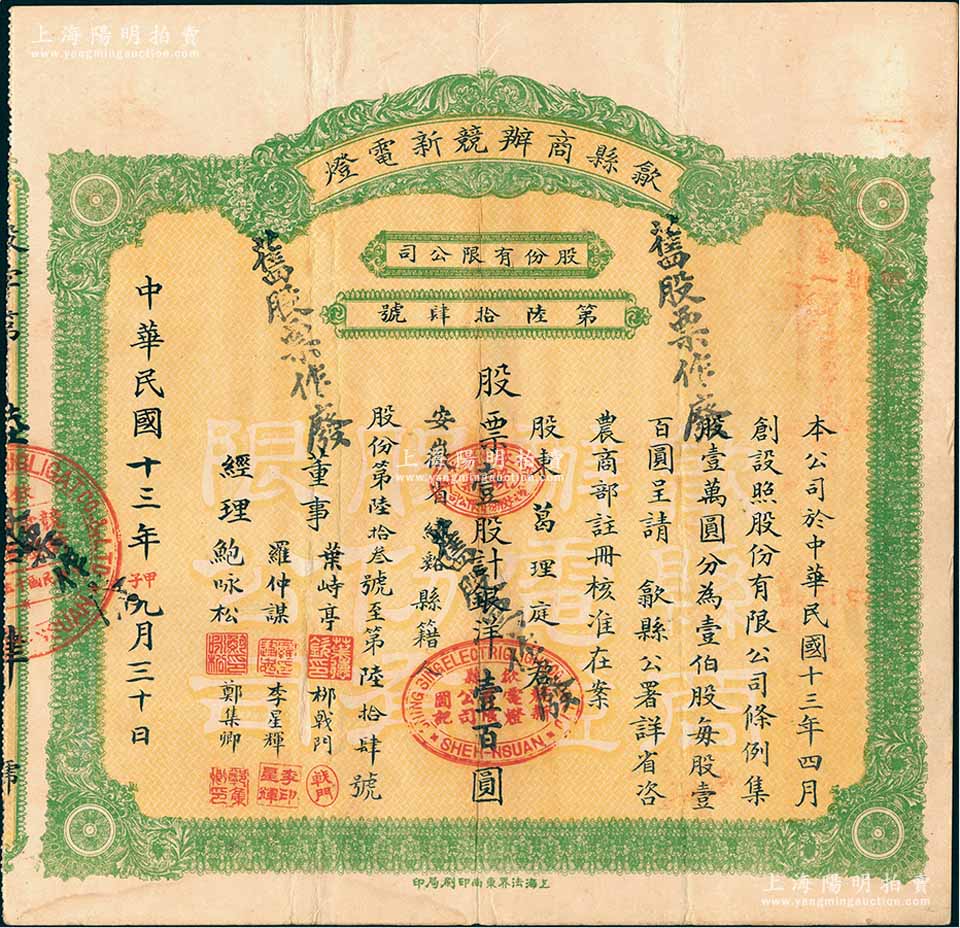 上海陽明拍賣
www.yangmingauction.com
上海陽明拍賣
www.yangmingauction.com
歙縣商辦競新電燈
股份有限公司
第陸拾肆號
本公司於中華民國十三年四月
創設照股份有限公司條例集
股壹萬圓分為壹伯股每股壹
百圓呈請 歙縣公署詳省咨
農商部註冊核准在案
股東葛理庭
股票壹股計銀洋壹百圓
安徽省 縣籍
股份第陸拾叁號至第陸拾肆號
董事 葉峙亭 鄉戟門
羅仲謀 李星輝
經理 鮑咏松 鄭集卿
中華民國十三年甲子九月三十日
舊股票作廢
舊股票作廢
上海陽明拍賣
www.yangmingauction.com
SING ELECTRIC
SHEH-HSUAN
戟門
李印星輝
上海法界東南印刷局印
上海陽明拍賣
www.yangmingauction.com